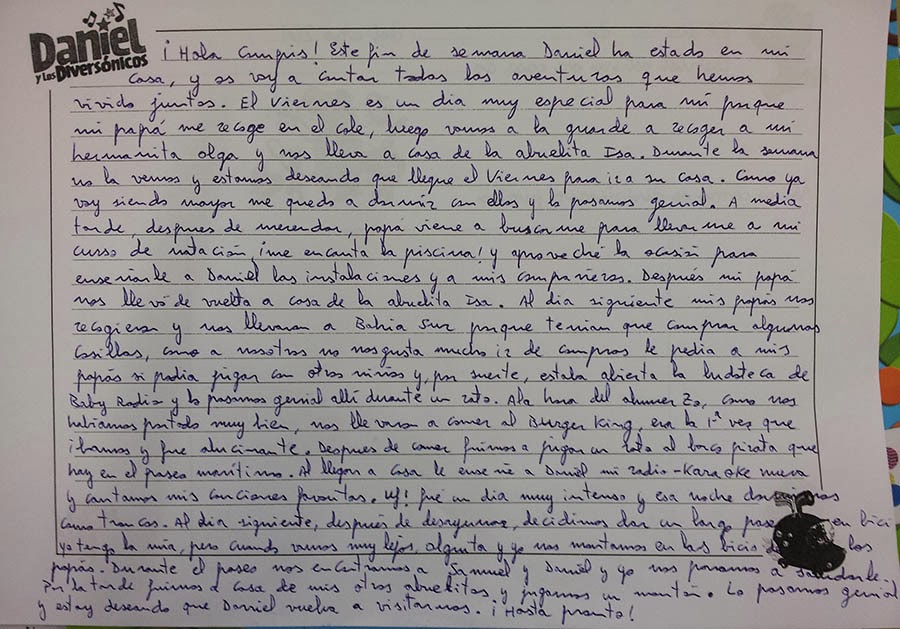 Daniel
y los Diversónicos
¡Hola Cumpis! Este fin de semana Daniel ha estado en mi
casa, y os voy a contar todas las aventuras que hemos
vivido juntos. El Viernes es un dia muy especial para mí porque
mi papá me recoge en el cole, luego vamos a la guarde a recoger a mi
hermanita olga y nos lleva a casa de la abuelita Isa. Durante la semana
no la vemos y estamos deseando que llegue el Viernes para ir a su casa. Como ya
voy siendo mayor me quedo a dormir con ellos y lo pasamos genial. A media
tarde, despues de merendar, papá viene a buscarme para llevarme a mi
curso de natación, ¡me encanta la piscina! y aproveché la ocasión para
enseñarle a Daniel las instalaciones y a mis compañeros. Después mi papá
nos llevó de vuelta a casa de la abuelita Isa. Al dia siguiente mis papás nos
recogieron y nos llevaron a Bahia Sur porque tenian que comprar algunas
cosillas, como a nosotros no nos gusta mucho ir de compras le pedia a mis
papás si podia jugar con otros niños y, por suerte, estaba abierta la ludoteca de
Baby Radio y lo pasamos genial allí durante un rato. A la hora del almuerzo, como nos
habiamos portado muy bien, nos llevaron a comer al Burger King, era la 1ª vez que
ibamos y fue alucinante. Despues de comer fuimos a jugar un rato al barco pirata que
hay en el paseo marítimo. Al llegar a casa le enseñe a Daniel mi radio-Karaoke nueva
y cantamos mis canciones favoritas. Uf! fué un dia muy intenso y esa noche dormimos
como troncos. Al dia siguiente, después de desayunar, decidimos dar un largo paseo en bici
yo tengo la mía, pero cuando vamos muy lejos, olguita y yo nos montamos en las bicis de los
papás. Durante el paseo nos encontramos a Samuel y Daniel y yo nos paramos a saludarle.
Por la tarde fuimos a casa de mis otros abuelitos y jugamos un montón. Lo pasamos genial
y estoy deseando que Daniel vuelva a visitarnos. ¡Hasta pronto!